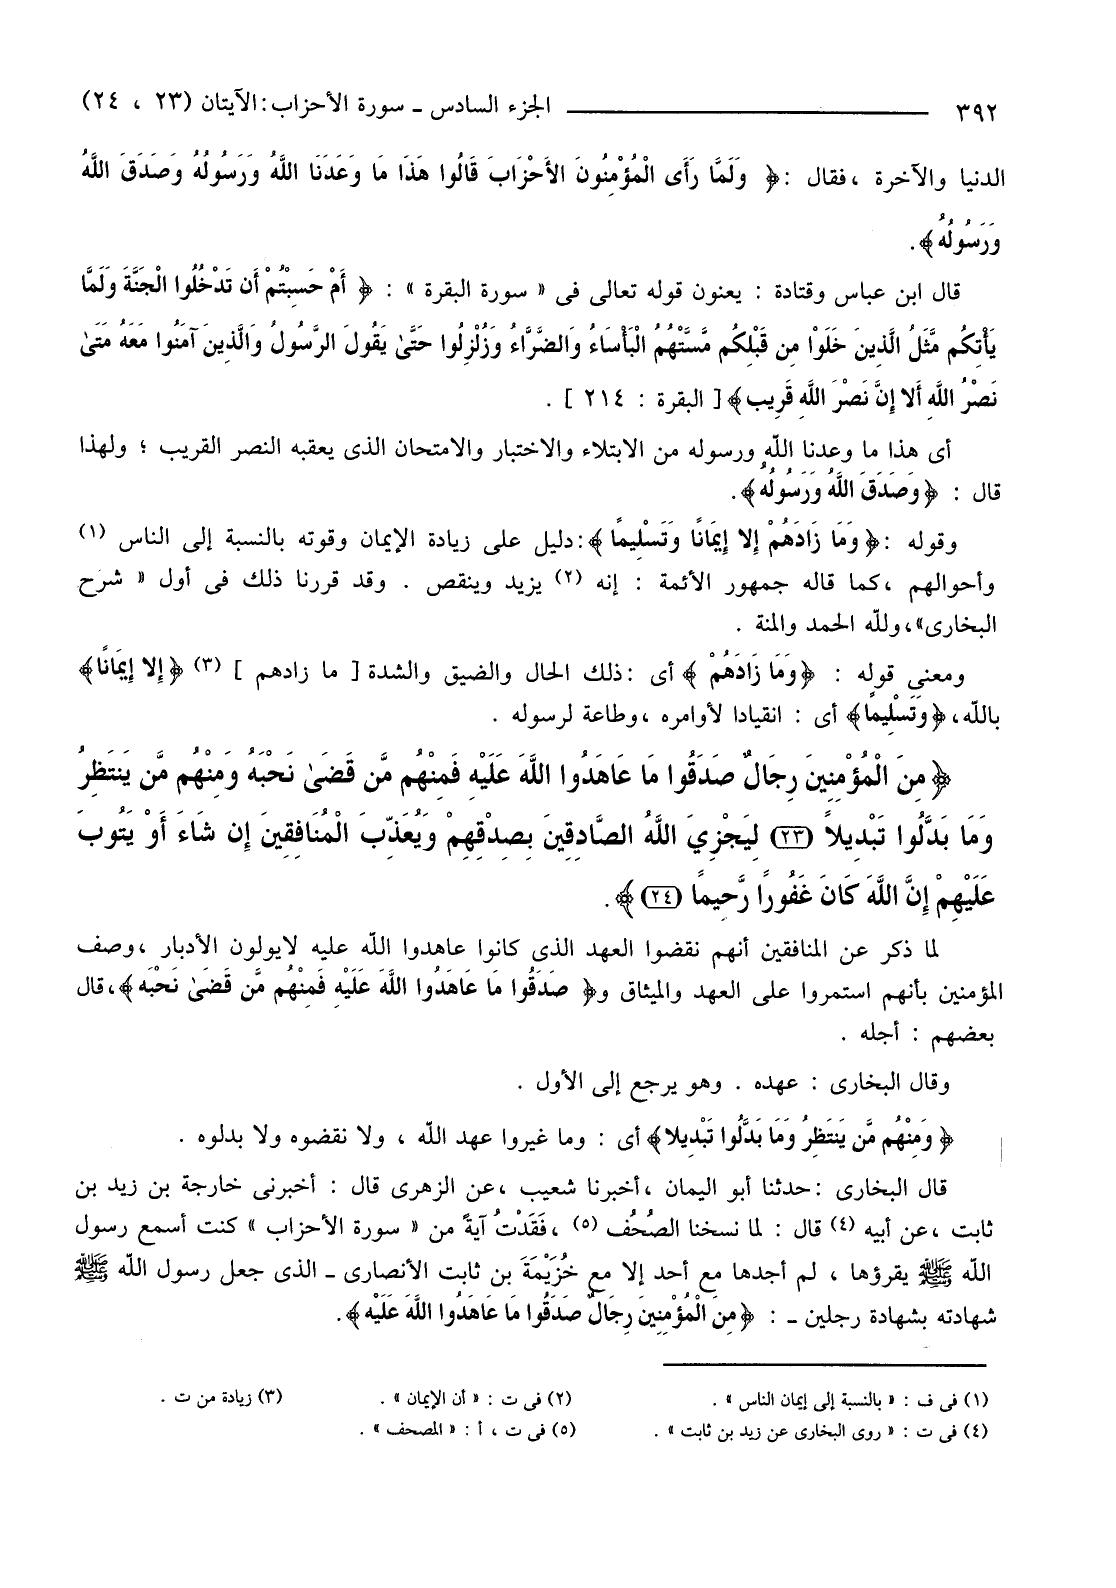 ٣٩٢ ــــــــ الجزء السادس ـ سورة الأحزاب: الآيتان (٢٣ ، ٢٤)
الدنيا والآخرة ، فقال : ﴿ وَلَمَّا رَأَى الْمُؤْمِنُونَ الأَحْزَابَ قَالُوا هَذَا مَا وَعَدَنَا اللَّهُ وَرَسُولُهُ وَصَدَقَ اللَّهُ
وَرَسُولُهُ﴾.
قال ابن عباس وقتادة : يعنون قوله تعالى فى « سورة البقرة » : ﴿ أَمْ حَسِبْتُمْ أَن تَدْخُلُوا الْجَنَّةَ وَلَمَّا
يَأْتِكُم مَّثَلُ الَّذِينَ خَلَوْا مِن قَبْلِكُم مَّسَّتْهُمُ الْبَأْسَاءُ وَالضَّرَّاءُ وَزُلْزِلُوا حَتَّىٰ يَقُولَ الرَّسُولُ وَالَّذِينَ آمَنُوا مَعَهُ مَتَىٰ
نَصْرُ اللَّهِ أَلا إِنَّ نَصْرَ اللَّهِ قَرِيب﴾ [ البقرة : ٢١٤ ] .
أى هذا ما وعدنا اللّه ورسوله من الابتلاء والاختبار والامتحان الذى يعقبه النصر القريب ؛ ولهذا
قال : ﴿وَصَدَقَ اللَّهُ وَرَسُولُهُ﴾.
وقوله : ﴿وَمَا زَادَهُمْ إِلا إِيمَانًا وَتَسْلِيمًا ﴾: دليل على زيادة الإيمان وقوته بالنسبة إلى الناس (١)
وأحوالهم ، كما قاله جمهور الأئمة : إنه (٢) يزيد وينقص . وقد قررنا ذلك فى أول « شرح
البخارى»، وللّه الحمد والمنة .
ومعنى قوله : ﴿وَمَا زَادَهُمْ ﴾ أى : ذلك الحال والضيق والشدة [ ما زادهم ] (٣) ﴿إِلا إِيمَانًا﴾
باللّه، ﴿وَتَسْلِيمًا﴾ أى : انقيادا لأوامره ، وطاعة لرسوله .
﴿ مِنَ الْمُؤْمِنِينَ رِجَالٌ صَدَقُوا مَا عَاهَدُوا اللَّهَ عَلَيْهِ فَمِنْهُم مَّن قَضَىٰ نَحْبَهُ وَمِنْهُم مَّن يَنتَظِرُ
وَمَا بَدَّلُوا تَبْدِيلاً (٢٣) لِيَجْزِيَ اللَّهُ الصَّادِقِينَ بِصِدْقِهِمْ وَيُعَذِّبَ الْمُنَافِقِينَ إِن شَاءَ أَوْ يَتُوبَ
عَلَيْهِمْ إِنَّ اللَّهَ كَانَ غَفُورًا رَّحِيمًا (٢٤) ﴾.
لما ذكر عن المنافقين أنهم نقضوا العهد الذى كانوا عاهدوا اللّه عليه لايولون الأدبار ، وصف
المؤمنين بأنهم استمروا على العهد والميثاق و﴿ صَدَقُوا مَا عَاهَدُوا اللَّهَ عَلَيْهِ فَمِنْهُم مَّن قَضَىٰ نَحْبَه ﴾، قال
بعضهم : أجله .
وقال البخارى : عهده . وهو يرجع إلى الأول .
﴿ وَمِنْهُم مَّن يَنتَظِرُ وَمَا بَدَّلُوا تَبْدِيلا﴾ أى : وما غيروا عهد اللّه ، ولا نقضوه ولا بدلوه .
قال البخارى : حدثنا أبو اليمان ، أخبرنا شعيب ، عن الزهرى قال : أخبرنى خارجة بن زيد بن
ثابت ، عن أبيه (٤) قال : لما نسخنا الصُحُف (٥) ، فَقَدْتُ آيةً من « سورة الأحزاب » كنت أسمع رسول
اللّه ﷺ يقرؤها ، لم أجدها مع أحد إلا مع خُزَيْمَةَ بن ثابت الأنصارى ـ الذى جعل رسول اللّه ﷺ
شهادته بشهادة رجلين ـ : ﴿مِنَ الْمُؤْمِنِينَ رِجَالٌ صَدَقُوا مَا عَاهَدُوا اللَّهَ عَلَيْه ﴾.
(١) فى ف : « بالنسبة إلى إيمان الناس » . (٢) فى ت : « أن الإيمان » . (٣) زيادة من ت .
(٤) فى ت : « روى البخارى عن زيد بن ثابت » . (٥) فى ت ، أ : « المصحف » .